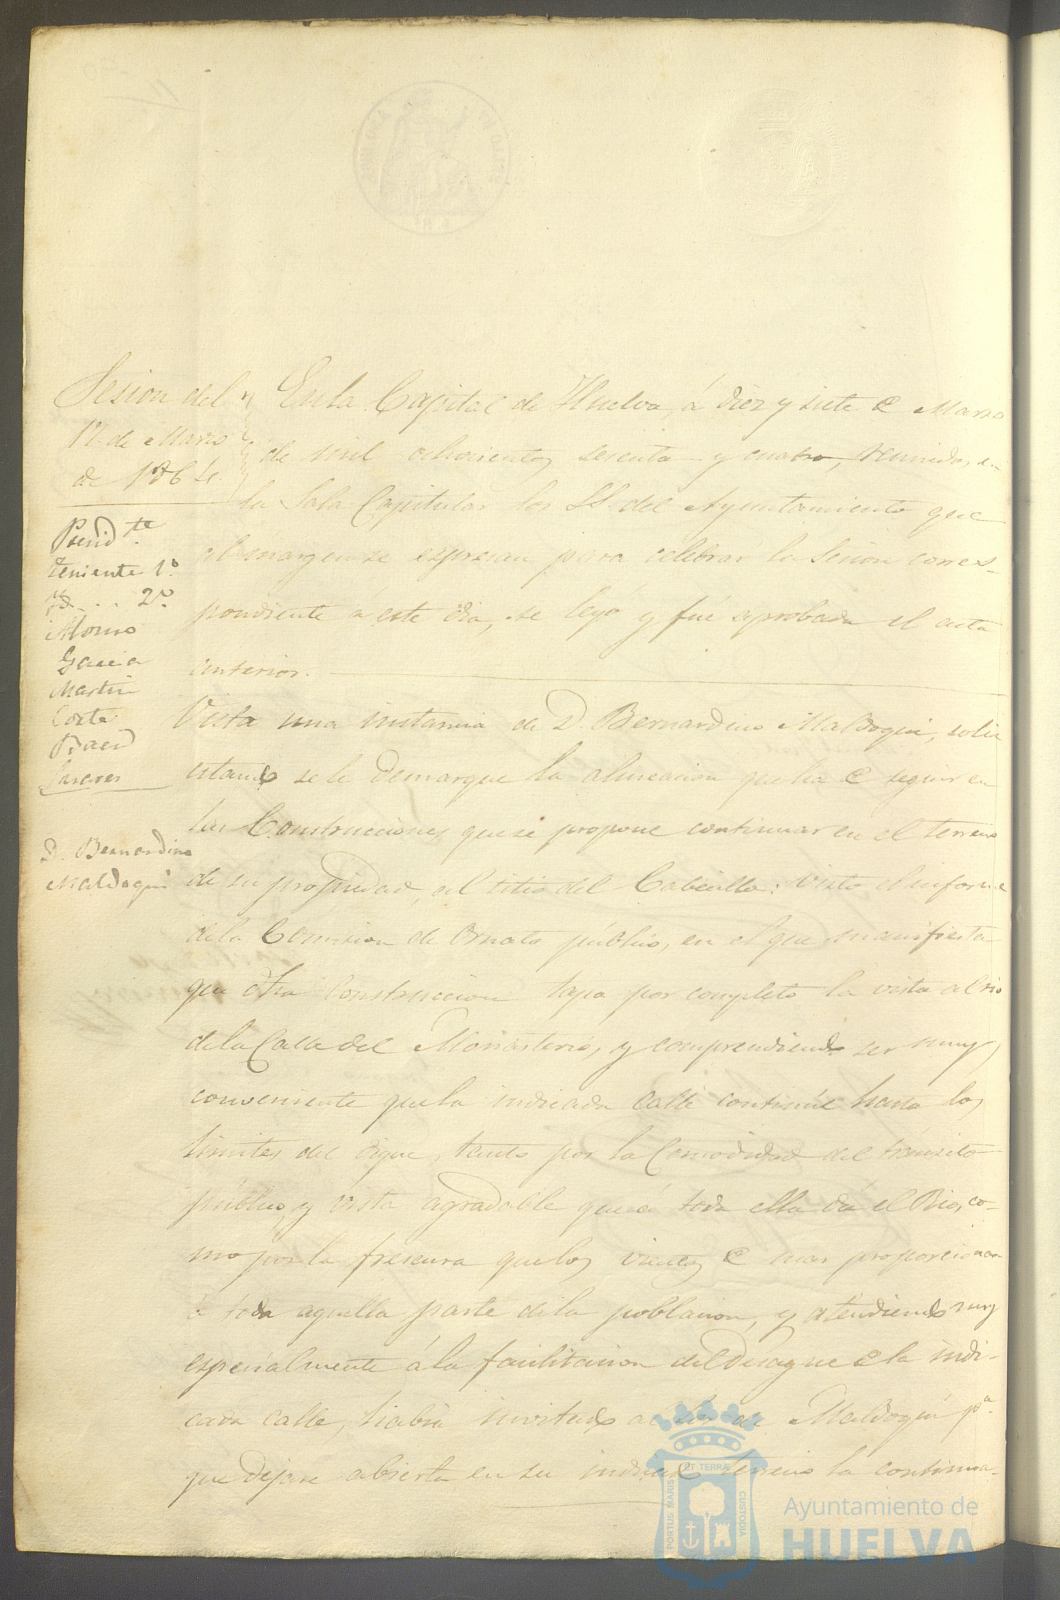 Sesion del
17 de Marzo
de 1864.
Presid.te
Teniente 1.º
Yd. . . . 2.º
Alonso
Garcia
Martin
Corte
Baez
D. Bernardino
Maldoqui
En la Capital de Huelva, á diez y siete de Marzo
de mil ochocientos sesenta y cuatro, reunidos en
la Sala Capitular los SS. del Ayuntamiento que
al margen se espresan para celebrar la Sesion corres-
pondiente a este dia, se leyó y fué aprobada el acta
anterior.
Vista una instancia de D. Bernardino Maldoqui, solici
estando se le demarque la alineacion que ha de seguir en
las Construcciones que se propone continuar en el terreno
de su propiedad, al sitio del Cabecillo: visto el informe
de la Comision de Ornato público, en el que manifiesta
que dha Construccion tapa por completo la vista al rio
de la Calle del Monasterio, y comprendiendo ser muy
conveniente que la indicada Calle continúe hasta los
limites del dique, tanto por la Comodidad del tránsito
público, y vista agradable que á toda ella dá el Rio, co-
mo por la frescura que los vientos de mar proporcionan
á toda aquella parte de la poblacion, y atendiendo muy
especialmente á la facilitacion del desague de la indi-
cada calle, habia invitado al de Maldoqui p.a
que dejase abierta en su indicado terreno la continua-
PORTUS MARIS
ET TERRAE
CUSTODIA
Ayuntamiento de
HUELVA